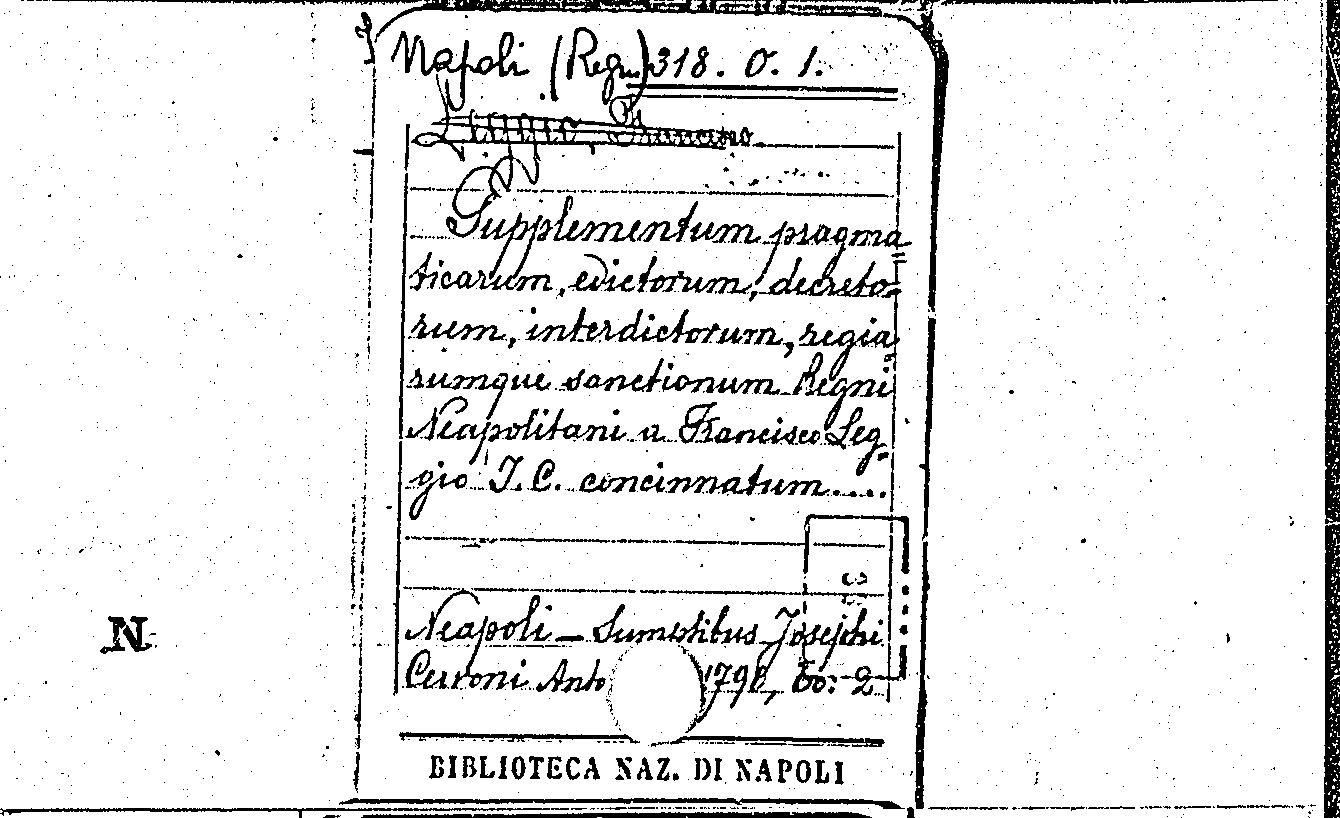 Napoli (Regn) 318. O. 1.
Leggio, Francesco
Supplementum pragma=
ticarum, edictorum, decreto=
rum, interdictorum, regia
rumque sanctionum Regni
Neapolitani a Francisco Leg=
gio J. C. concinnatum....
Neapoli - Sumptibus Josephi
Cervoni Anto 1790, to: 2
BIBLIOTECA NAZ. DI NAPOLI
N